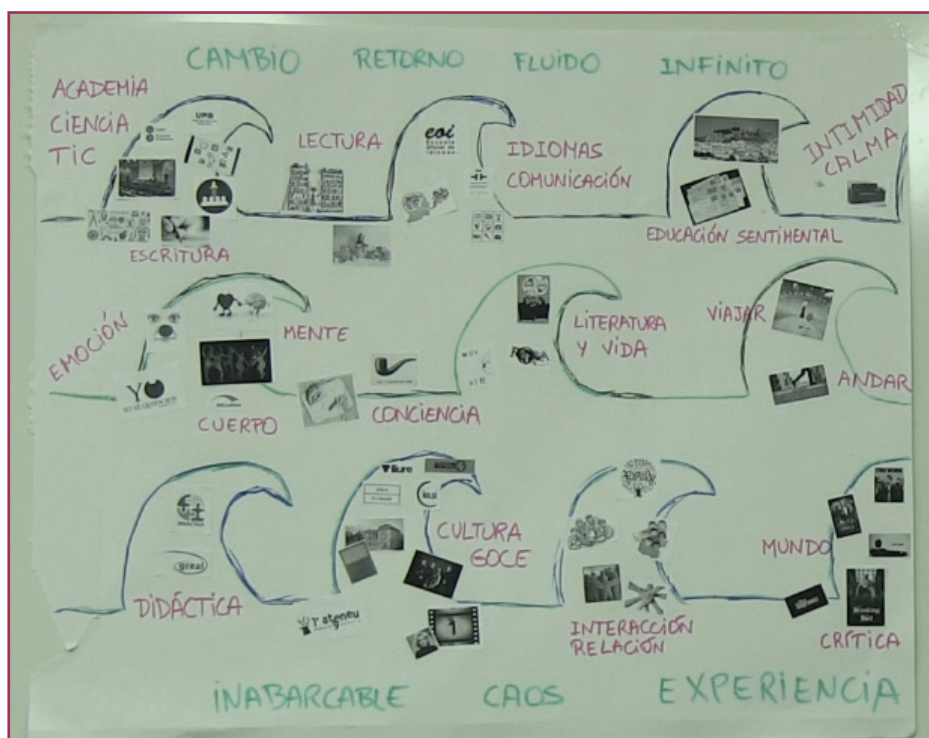 CAMBIO RETORNO FLUIDO INFINITO
ACADEMIA
CIENCIA
TIC
UPB
LECTURA
eoi
IDIOMAS
COMUNICACIÓN
INTIMIDAD
CALMA
ESCRITURA
EDUCACIÓN SENTIMENTAL
EMOCIÓN
MENTE
YO
CUERPO
CONCIENCIA
LITERATURA
Y VIDA
VIAJAR
ANDAR
DIDÁCTICA
greal
lliure
CULTURA
GOCE
ateneu
1
INTERACCIÓN
RELACIÓN
MUNDO
Breaking
Bad
CRÍTICA
INABARCABLE CAOS EXPERIENCIA